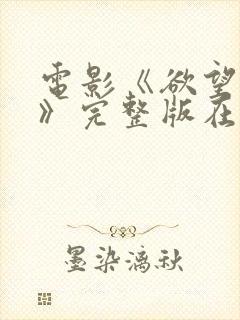 電影《欲望
》完整版在
墨染漓秋